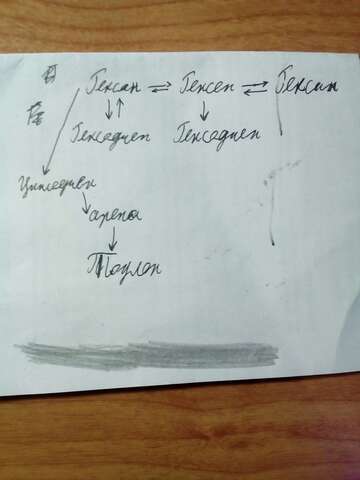 Гексан ⇌ Гексен ⇌ Гексин
Гексадиен Гексадиен
арены
Толуол